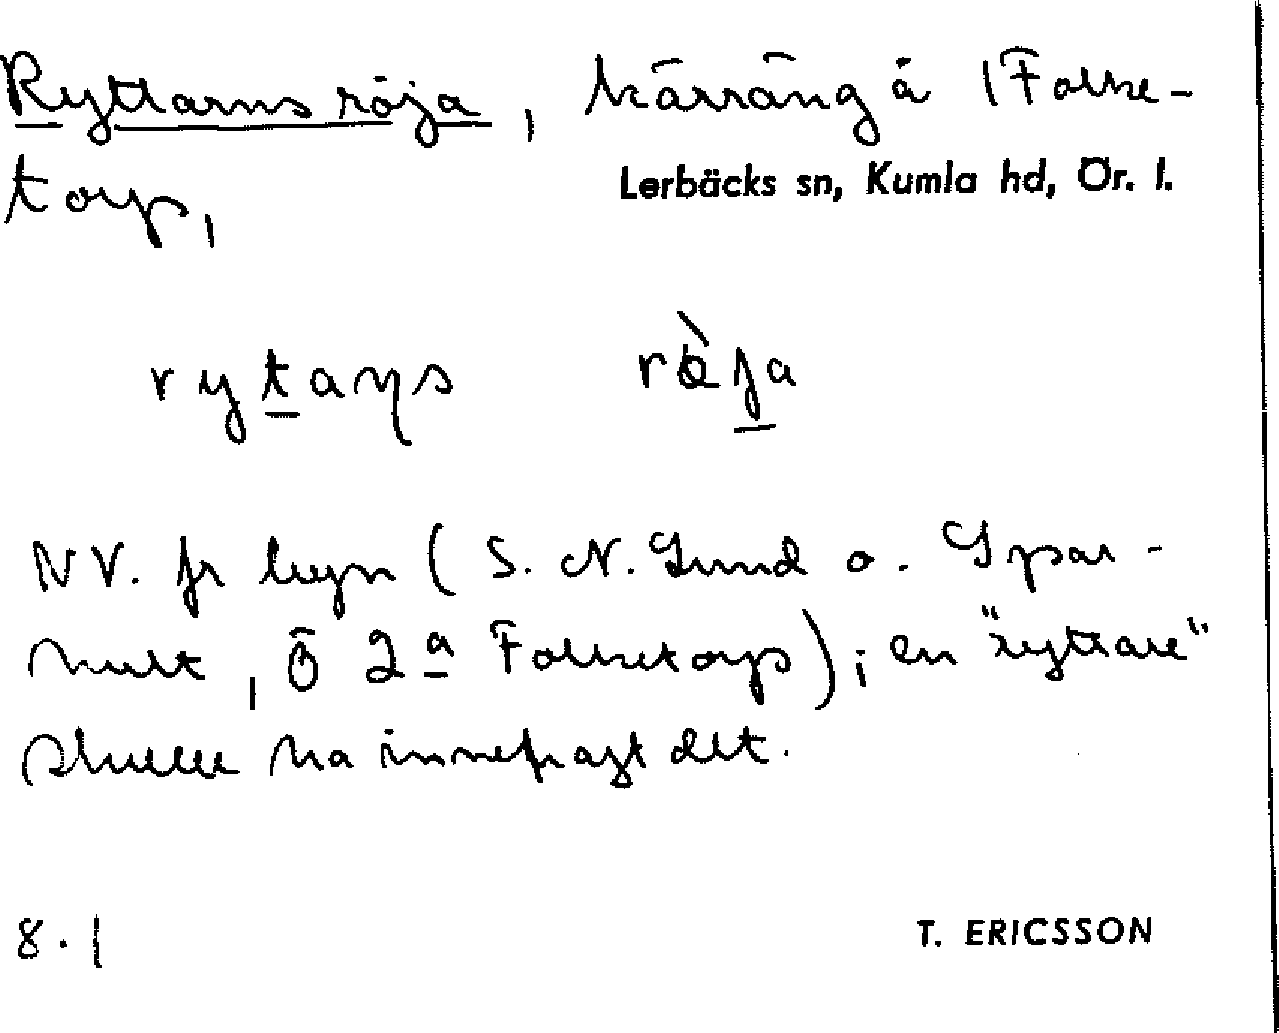 Ryttarns röja, kärräng å 1 Folke-
torp,
Lerbäcks sn, Kumla hd, Ör. l.
rytaɳs röja
NV. fr byn (S. N. Lund o. Spar-
hult, Ö 2a Folketorp); en "ryttare"
skulle ha innehaft det.
8.1
T. ERICSSON